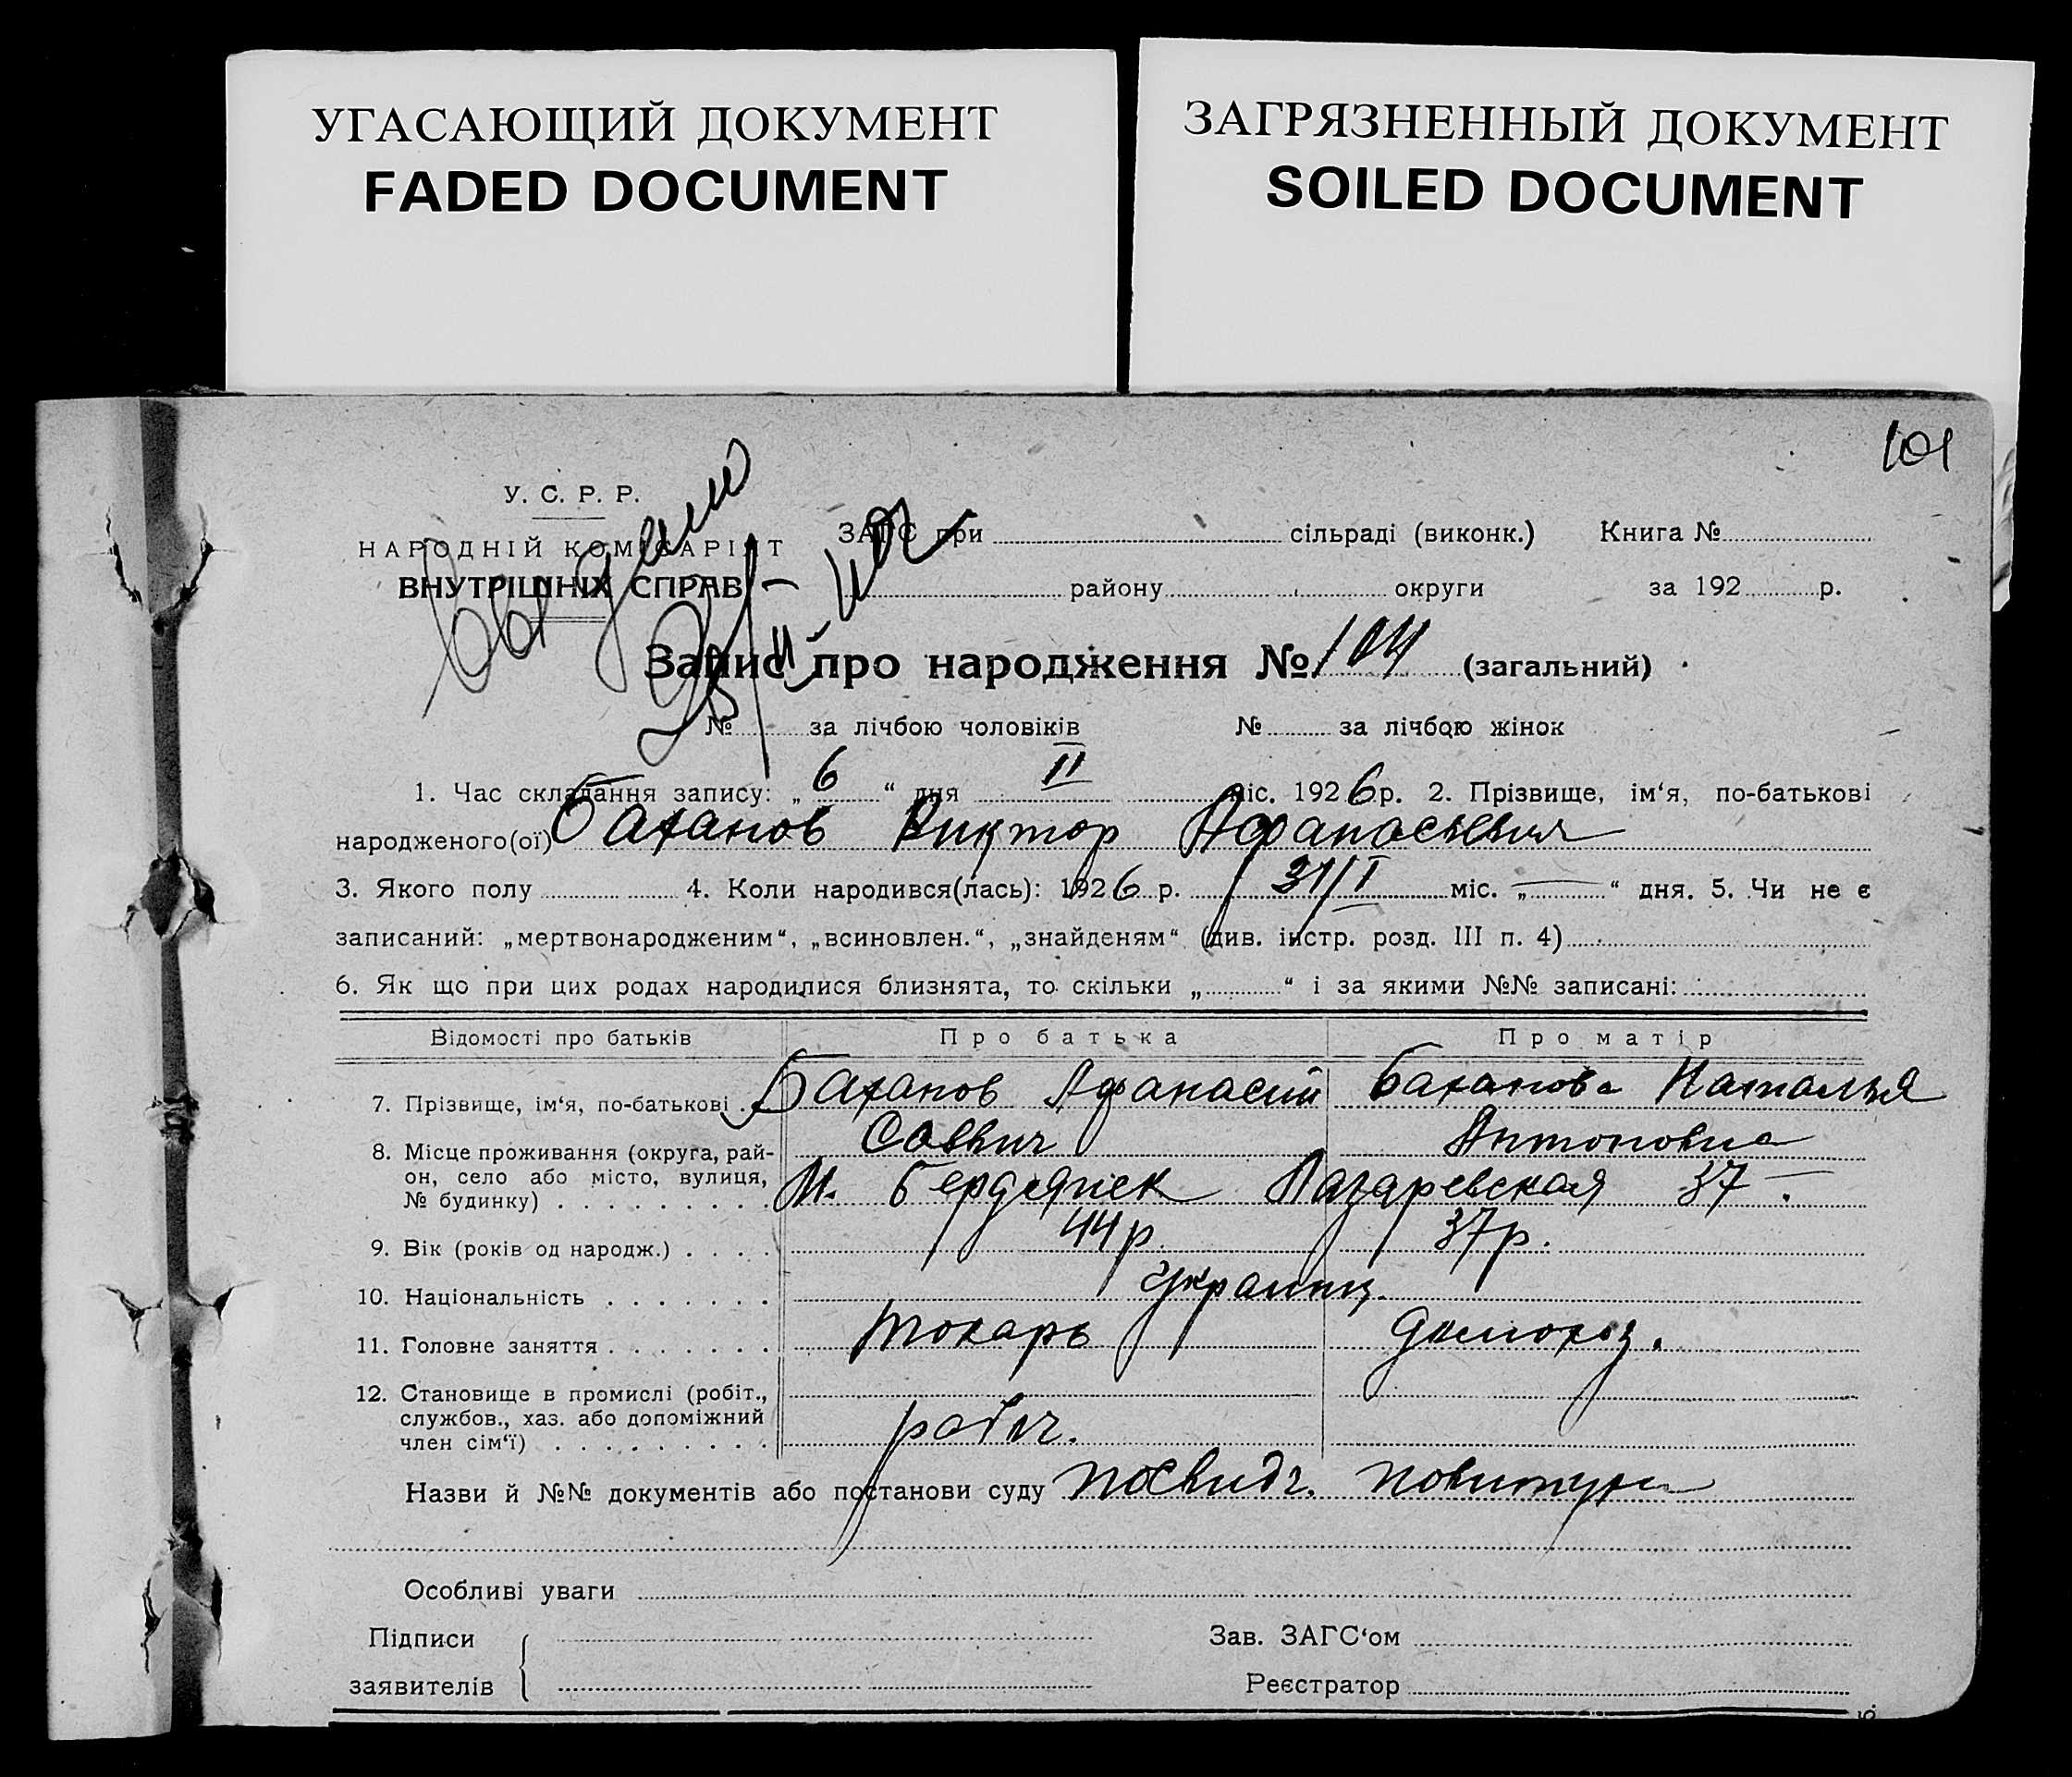 УГАСАЮЩИЙ ДОКУМЕНТ
FADED DOCUMENT
ЗАГРЯЗНЕННЫЙ ДОКУМЕНТ
SOILED DOCUMENT
101
У. С. Р. Р.
НАРОДНІЙ КОМІСАРІЯТ
ВНУТРІШНІХ СПРАВ
ЗАГС при сільраді (виконк.) Книга №
району округи за 192 р.
Запис про народження № 104 (загальний)
№ за лічбою чоловіків № за лічбою жінок
1. Час складання запису: „ 6 “ дня II міс. 1926 р. 2. Прізвище, ім‘я, по-батькові
народженого(ої) Баханов Виктор Афанасьевич
3. Якого полу 4. Коли народився(лась): 1926 р. 31/I міс. „ — “ дня. 5. Чи не є
записаний: „мертвонародженим“, „всиновлен.“, „знайденям“ (див. інстр. розд. III п. 4)
6. Як що при цих родах народилися близнята, то скільки „ “ і за якими №№ записані:
Відомості про батьків Про батька Про матір
7. Прізвище, ім‘я, по-батькові . Баханов Афанасий Баханова Наталья
Саввич Антоновна
8. Місце проживання (округа, рай-
он, село або місто, вулиця,
№ будинку) . . . . . . . . . М. Бердянск Лазаревская 37
9. Вік (років од народж.) . . . . 44 р. 37 р.
10. Національність . . . . . . . Украинц.
11. Головне заняття . . . . . . . токарь домохоз.
12. Становище в промислі (робіт.,
службов., хаз. або допоміжний
член сім‘ї) . . . . . . . . . рабоч.
Назви й №№ документів або постанови суду посвидч. повитухи
Особливі уваги
Підписи
заявителів
Зав. ЗАГС‘ом
Реєстратор